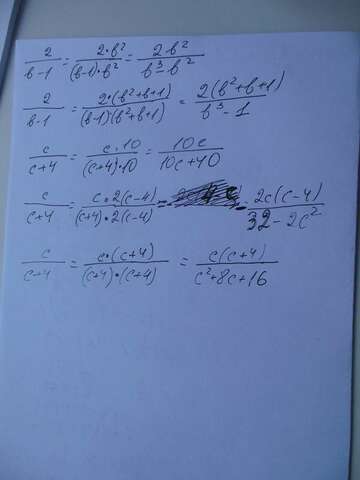 2/(b-1) = 2·b²/((b-1)·b²) = 2b²/(b³-b²)
2/(b-1) = 2·(b²+b+1)/((b-1)(b²+b+1)) = 2(b²+b+1)/(b³-1)
c/(c+4) = c·10/((c+4)·10) = 10c/(10c+40)
c/(c+4) = c·2(c-4)/((c+4)·2(c-4)) = = 2c(c-4)/(32-2c²)
c/(c+4) = c·(c+4)/((c+4)·(c+4)) = c(c+4)/(c²+8c+16)